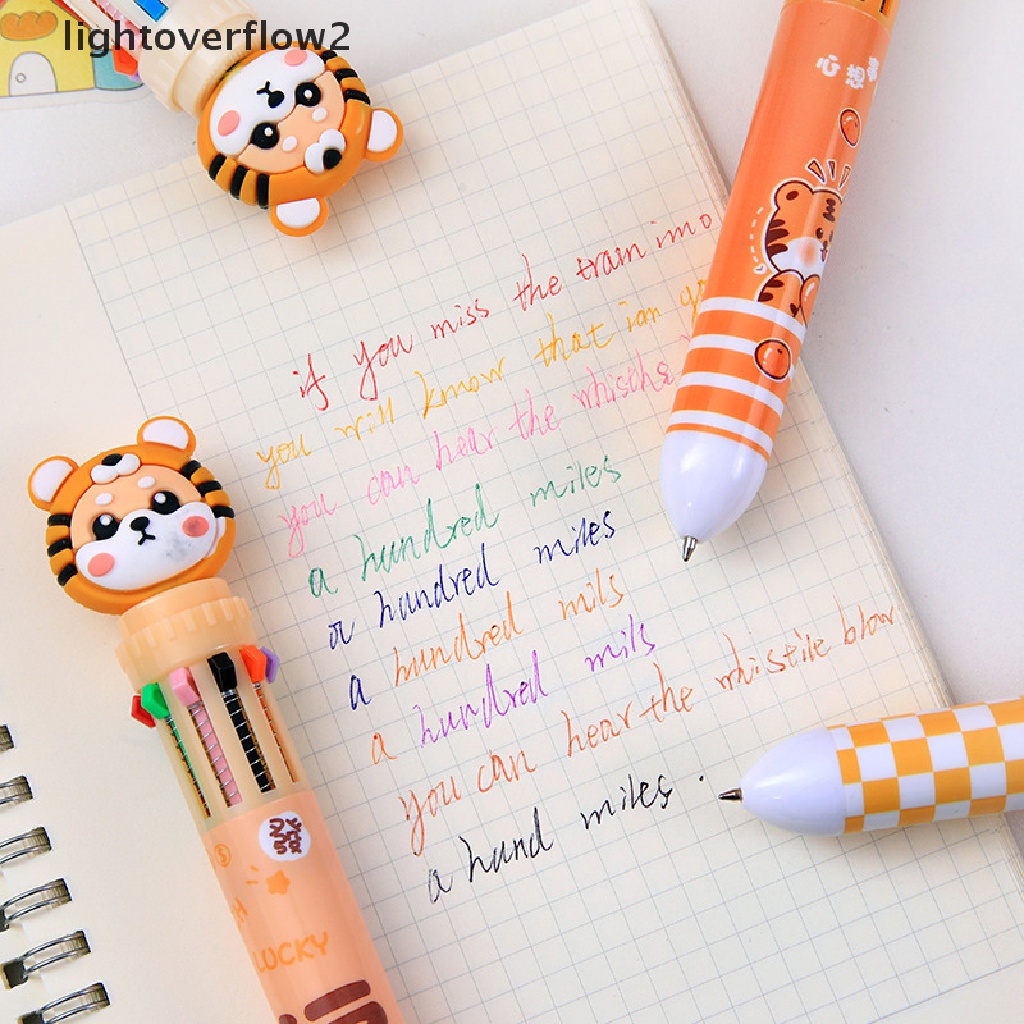 lightoverflow2
心想
if you miss the train imo
you will know that iam go
you can hear the whisths
a hundred miles
a hundred miles
a hundred mils
a hundred mils
you can hear the whistile blow
a hund miles .
LUCKY